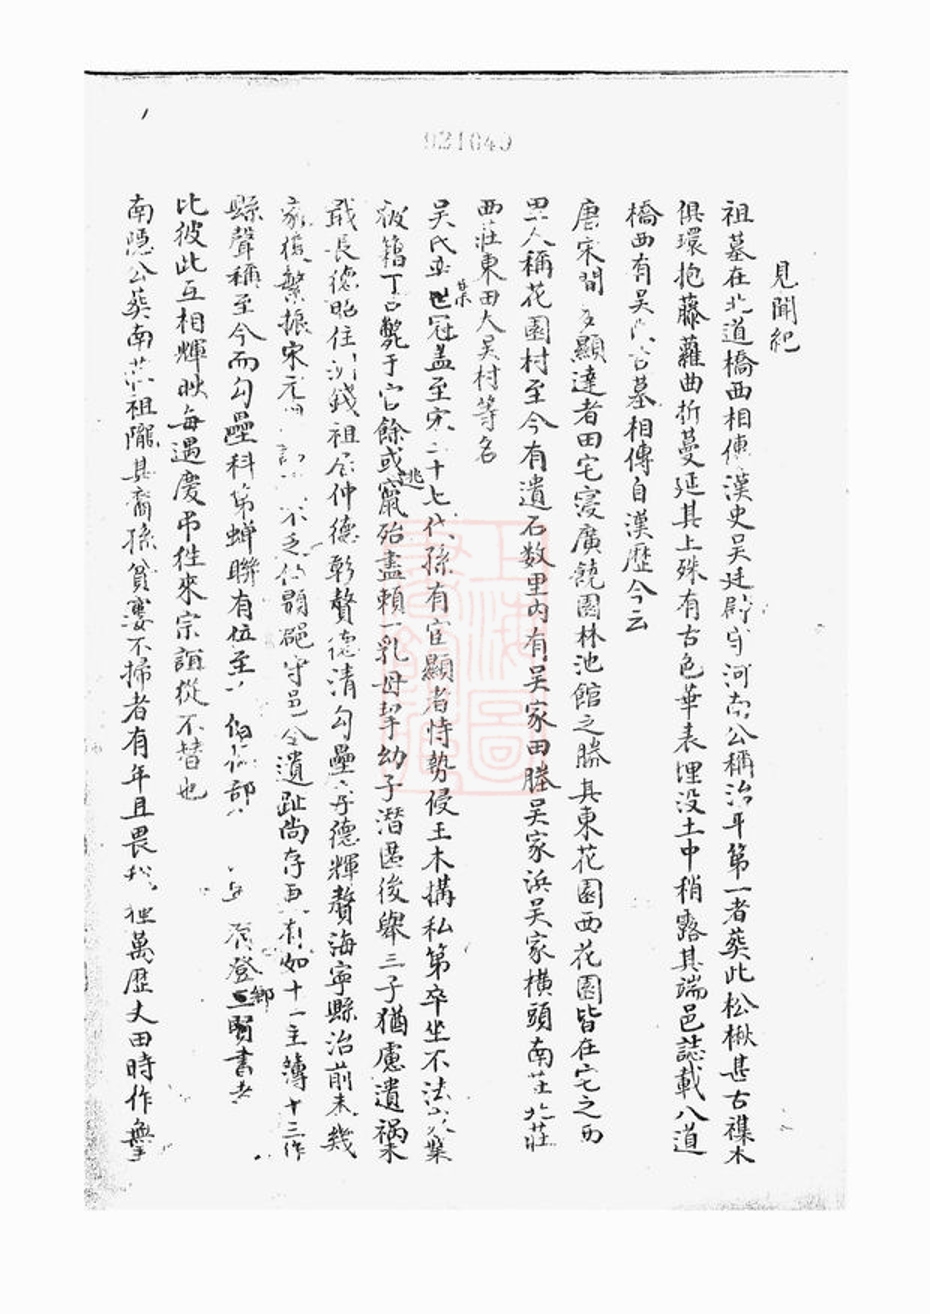 921049
見聞紀
祖墓在北道橋西相傳漢史吳廷尉守河南公稱治平第一者葬此松楸甚古襍木
俱環抱藤蘿曲折蔓延其上殊有古色華表埋没土中稍露其端邑誌載八道
橋西有吳墓相傳自漢歷今云
唐宋間多顯達者田宅寖廣饒園林池館之勝其東花園西花園皆在宅之西
里人稱花園村至今有遺石数里内有吳家田塍吳家浜吳家橫頭南莊北莊
西莊東田大吳村等名
吳氏奕世冠盖至宋二十七代孫有宦顯者恃勢侵王木搆私第卒坐不法
被籍丁口斃于官餘或逃竄殆盡賴一乳母挈幼子潛匿後舉三子猶慮遺禍
戢長德昭住錢祖居仲德彰贅德清勾壘季德輝贅海寧縣治前未幾
家復繁振宋元不乏顯守邑令遺趾尚存再如十一主簿十三作
縣聲稱至今而勾壘科第蟬聯有位至部登鄉賢書者
比彼此互相輝映每遇慶弔徃來宗誼從不替也
南隱公葬南莊祖隴其裔孫貧窶不掃者有年且畏萬歷丈田時作
上海圖書館藏